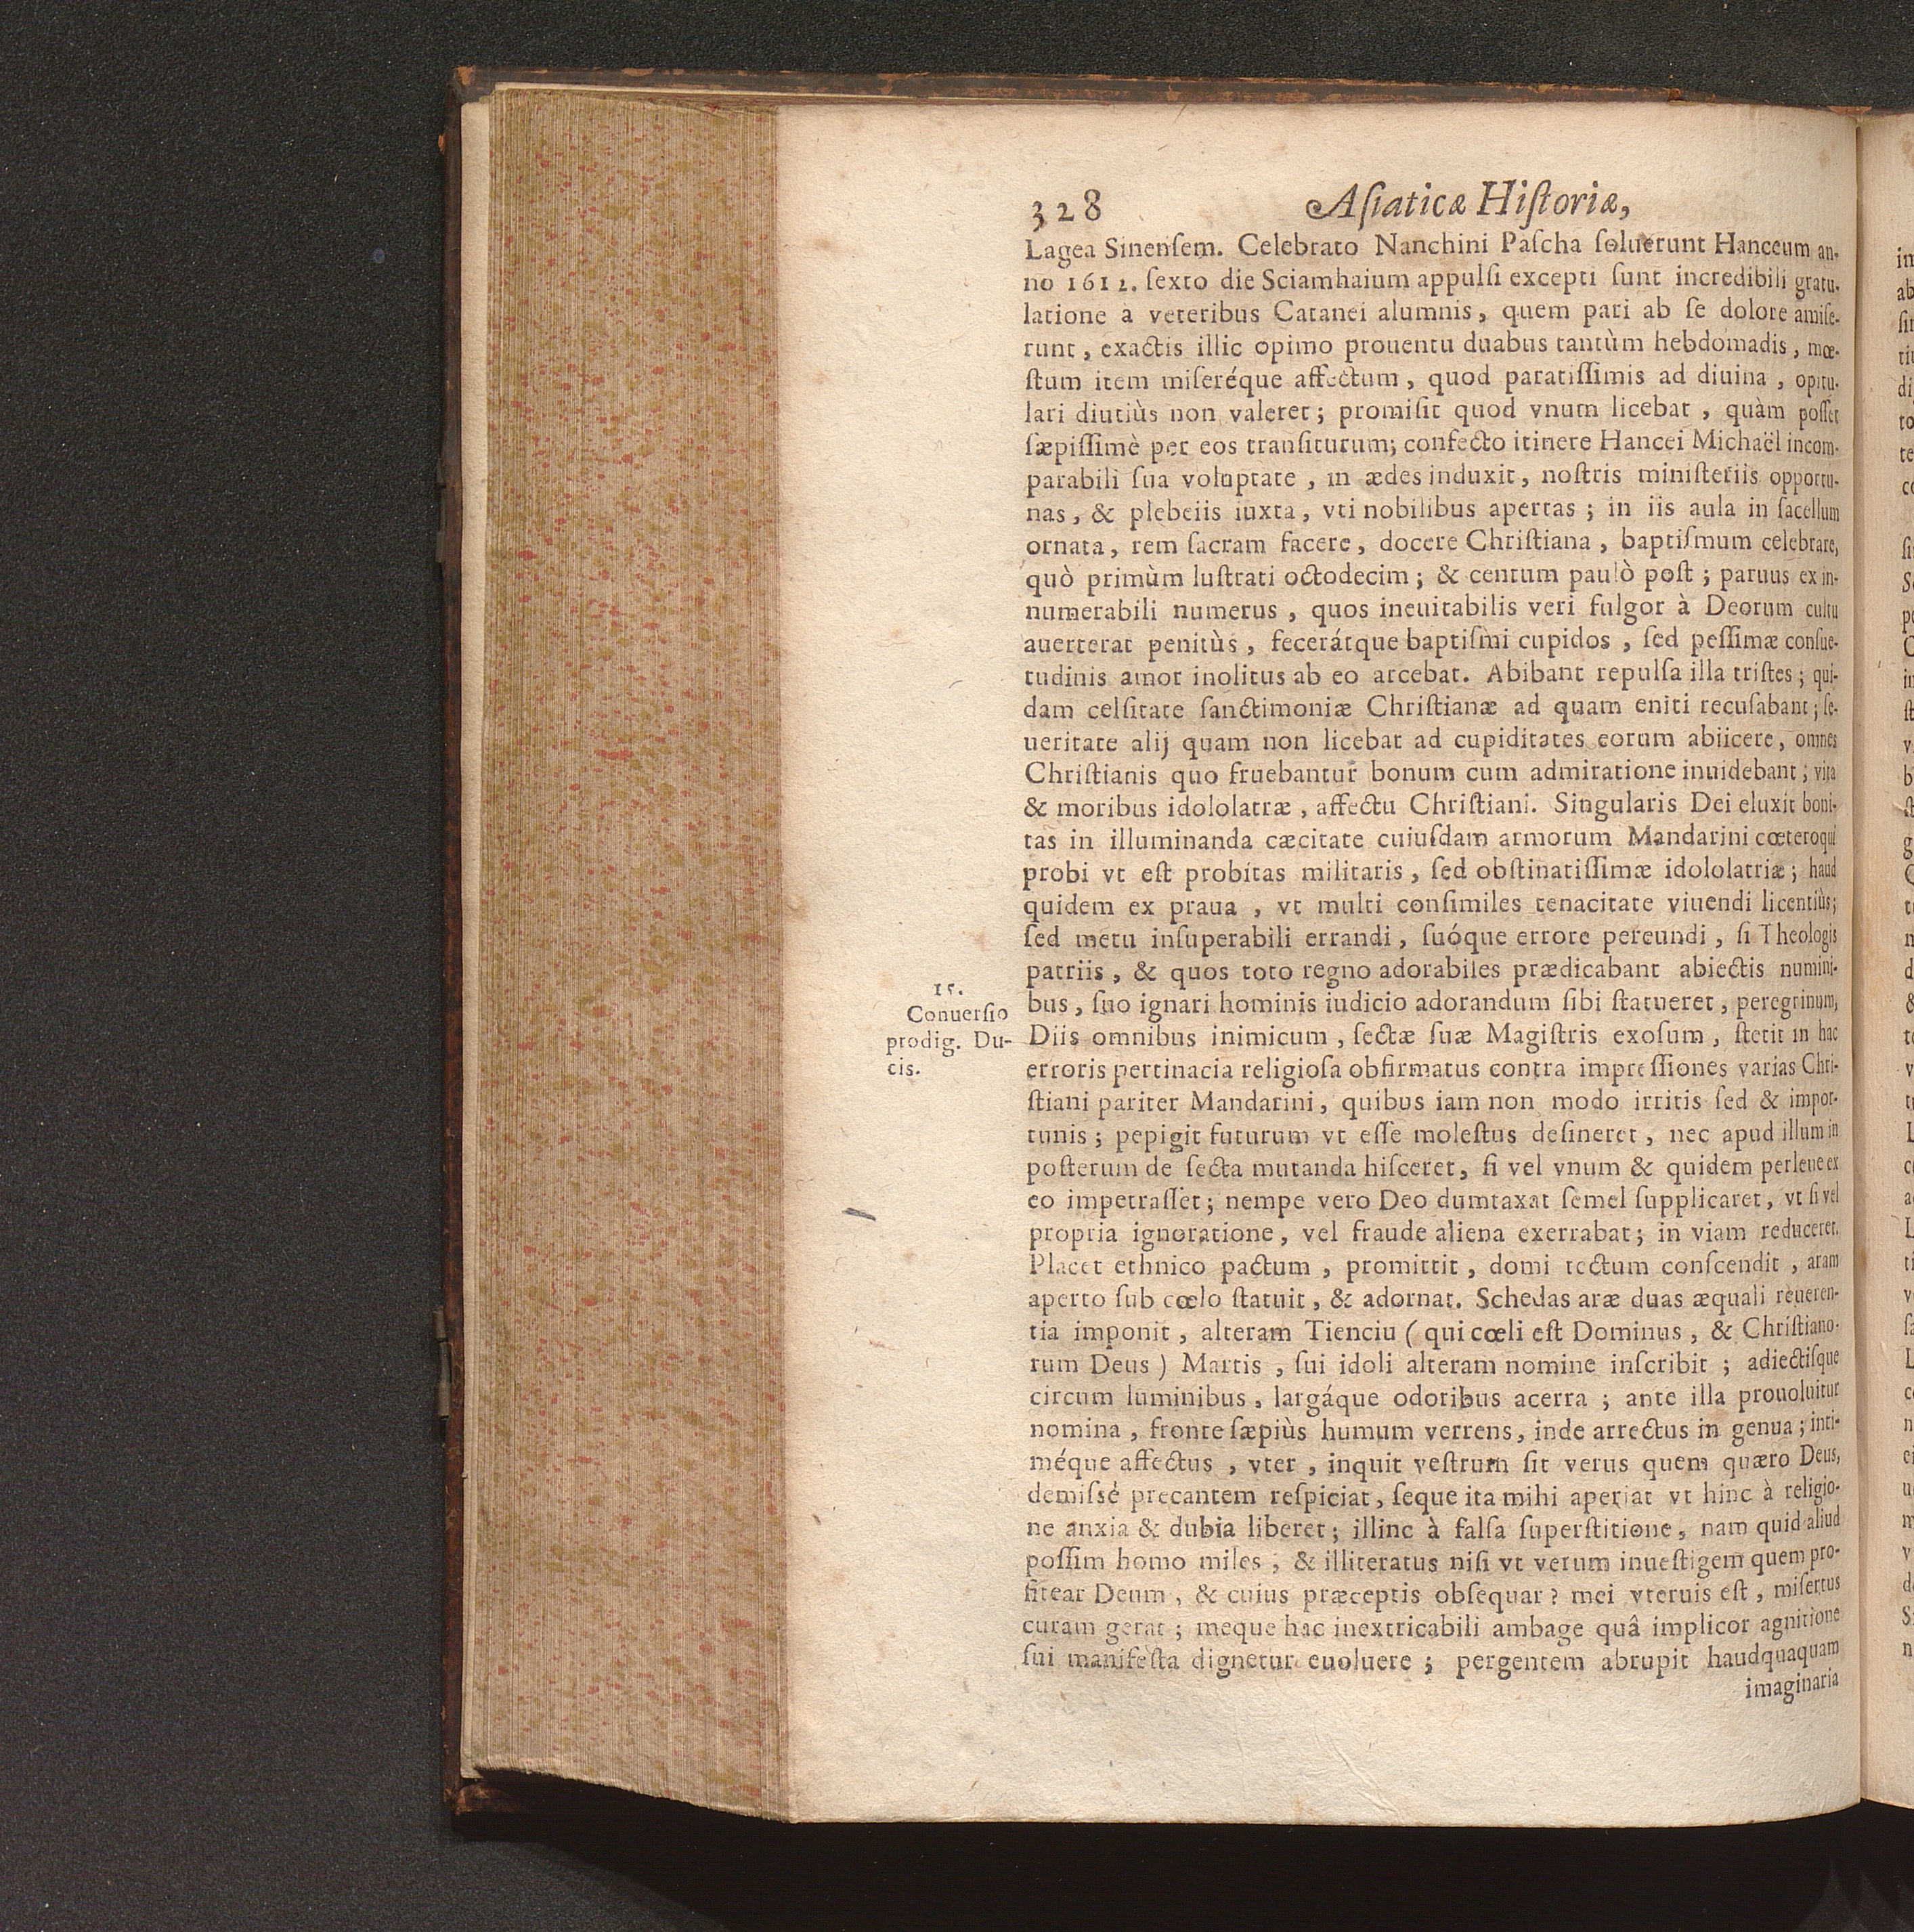 328 Aſiaticæ Hiſtoriæ,
Lagea Sinenſem. Celebrato Nanchini Paſcha ſoluerunt Hanceum an-
no 1612. ſexto die Sciamhaium appulſi excepti ſunt incredibili gratu-
latione a veteribus Catanei alumnis, quem pari ab ſe dolore amiſe-
runt, exactis illic opimo prouentu duabus tantùm hebdomadis, mœ-
ſtum item miſeréque affectum, quod paratiſſimis ad diuina, opitu-
lari diutiùs non valeret; promiſit quod vnum licebat, quàm poſſet
ſæpiſſimè per eos tranſiturum; confecto itinere Hancei Michaël incom-
parabili ſua voluptate, in ædes induxit, noſtris miniſteriis opportu-
nas, & plebeiis iuxta, vti nobilibus apertas; in iis aula in ſacellum
ornata, rem ſacram facere, docere Chriſtiana, baptiſmum celebrare,
quò primùm luſtrati octodecim; & centum paulò poſt; paruus ex in-
numerabili numerus, quos ineuitabilis veri fulgor à Deorum cultu
auerterat penitùs, fecerátque baptiſmi cupidos, ſed peſſimæ conſue-
tudinis amor inolitus ab eo arcebat. Abibant repulſa illa triſtes; qui-
dam celſitate ſanctimoniæ Chriſtianæ ad quam eniti recuſabant; ſe-
ueritate alij quam non licebat ad cupiditates eorum abiicere, omnes
Chriſtianis quo fruebantur bonum cum admiratione inuidebant; vita
& moribus idololatræ, affectu Chriſtiani. Singularis Dei eluxit boni-
tas in illuminanda cæcitate cuiuſdam armorum Mandarini cœteroqui
probi vt eſt probitas militaris, ſed obſtinatiſſimæ idololatriæ; haud
quidem ex praua, vt multi conſimiles tenacitate viuendi licentiùs;
ſed metu inſuperabili errandi, ſuóque errore pereundi, ſi Theologis
patriis, & quos toto regno adorabiles prædicabant abiectis numini-
bus, ſuo ignari hominis iudicio adorandum ſibi ſtatueret, peregrinum,
Diis omnibus inimicum, ſectæ ſuæ Magiſtris exoſum, ſtetit in hac
erroris pertinacia religioſa obfirmatus contra impreſſiones varias Chri-
ſtiani pariter Mandarini, quibus iam non modo irritis ſed & impor-
tunis; pepigit futurum vt eſſe moleſtus deſineret, nec apud illum in
poſterum de ſecta mutanda hiſceret, ſi vel vnum & quidem perleue ex
eo impetraſſet; nempe vero Deo dumtaxat ſemel ſupplicaret, vt ſi vel
propria ignoratione, vel fraude aliena exerrabat; in viam reduceret.
Placet ethnico pactum, promittit, domi tectum conſcendit, aram
aperto ſub cœlo ſtatuit, & adornat. Schedas aræ duas æquali reueren-
tia imponit, alteram Tienciu (qui cœli eſt Dominus, & Chriſtiano-
rum Deus) Martis, ſui idoli alteram nomine inſcribit; adiectiſque
circum luminibus, largáque odoribus acerra; ante illa prouoluitur
nomina, fronte ſæpiùs humum verrens, inde arrectus in genua; inti-
méque affectus, vter, inquit veſtrum ſit verus quem quæro Deus,
demiſsè precantem reſpiciat, ſeque ita mihi aperiat vt hinc à religio-
ne anxia & dubia liberet; illinc à falſa ſuperſtitione, nam quid aliud
poſſim homo miles, & illiteratus niſi vt verum inueſtigem quem pro-
fitear Deum, & cuius præceptis obſequar? mei vteruis eſt, miſertus
curam gerat; meque hac inextricabili ambage quâ implicor agnitione
ſui manifeſta dignetur euoluere; pergentem abrupit haudquaquam
imaginaria
15.
Conuerſio
prodig. Du-
cis.